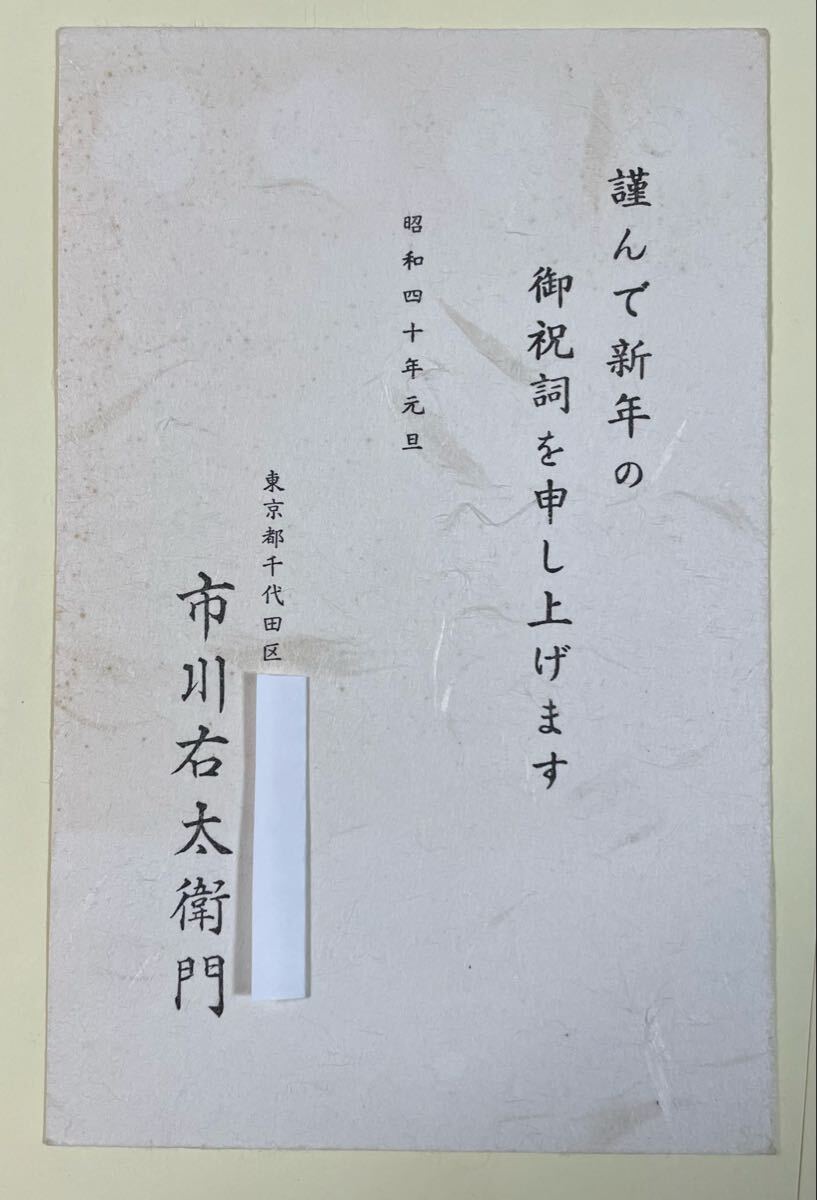 謹んで新年の
御祝詞を申し上げます
昭和四十年元旦
東京都千代田区
市川右太衛門